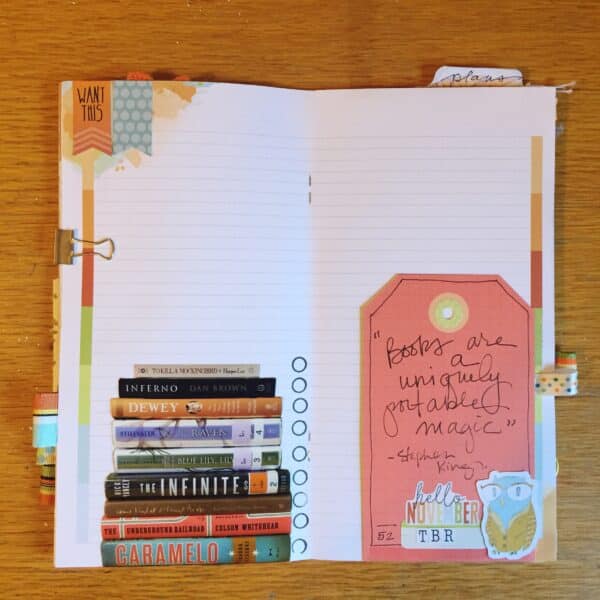 WANT
THIS
plans
TO KILL A MOCKINGBIRD Harper Lee
INFERNO DAN BROWN
DEWEY
STIEFVATER RAVEN 4
BLUE LILY, LI 3
THE INFINITE 2
THE UNDERGROUND RAILROAD COLSON WHITEHEAD
CARAMELO
"Books are
a
uniquely
portable
magic"
-Stephen
King
hello
NOVEMBER
TBR
52